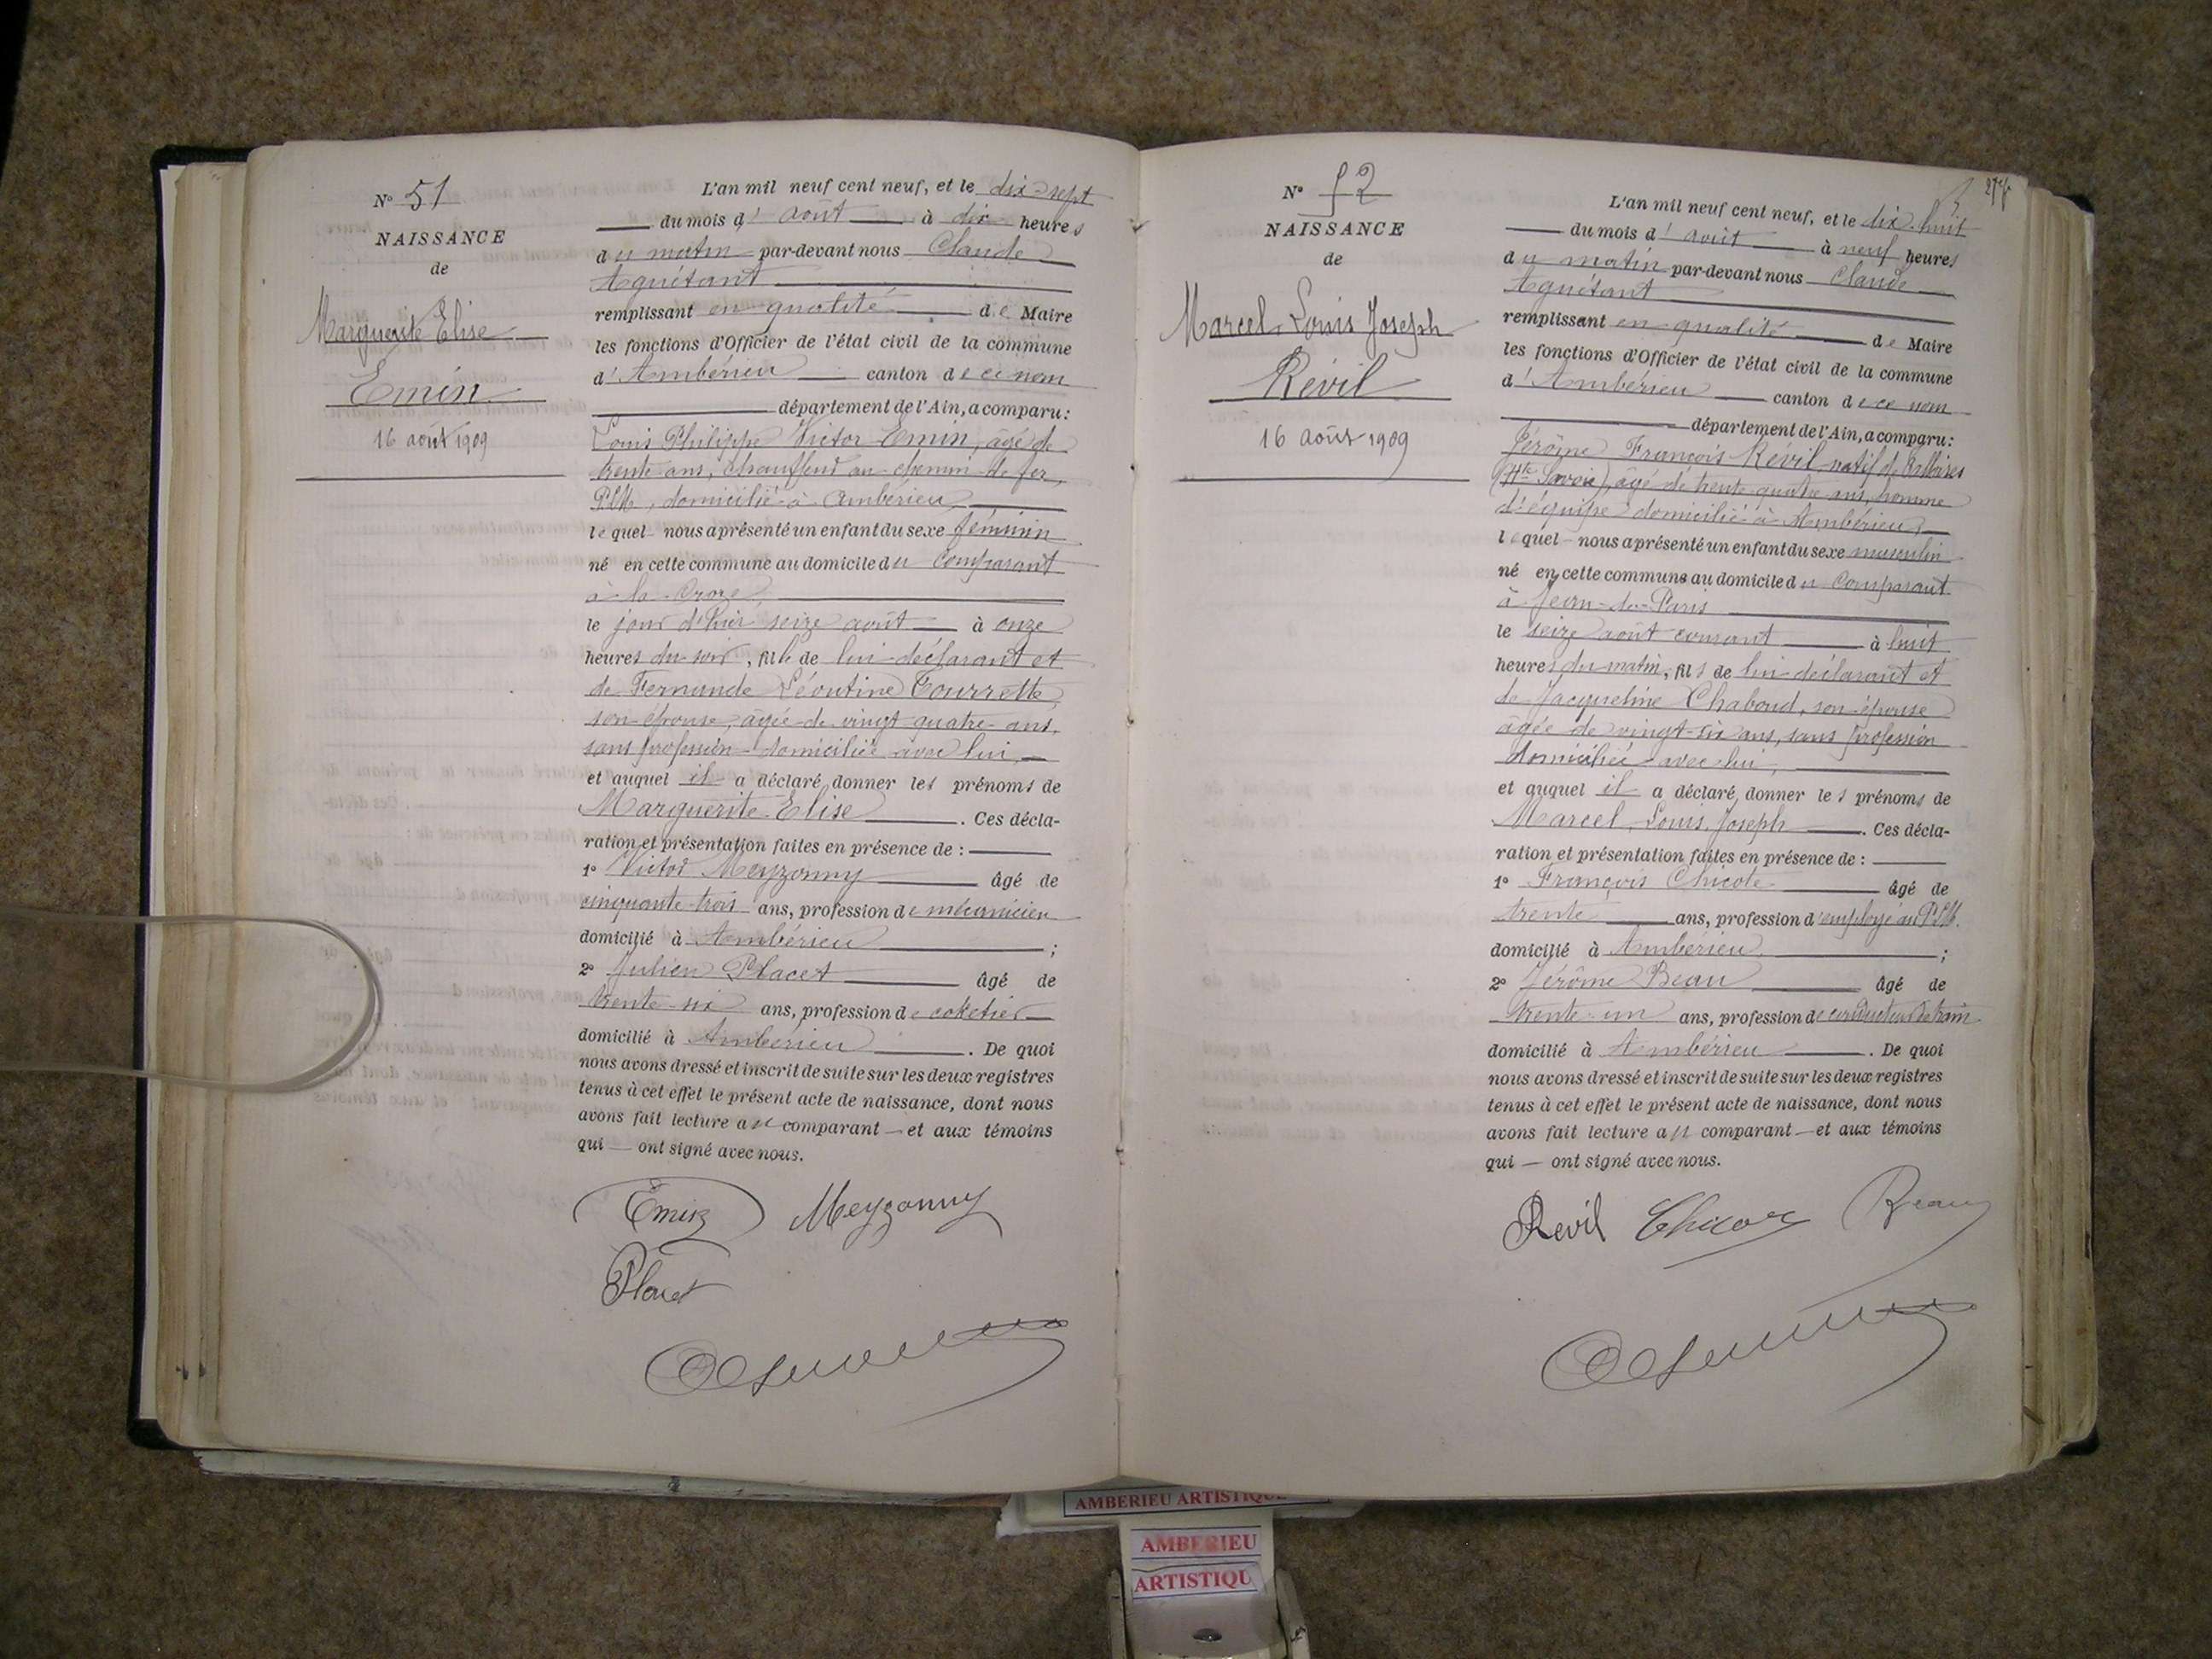 N° 51
NAISSANCE
de
Marguerite Elise
Emin
16 août 1909
L'an mil neuf cent neuf, et le dix-sept
du mois d'août à dix heures
du matin par-devant nous Claude
Aguétant
remplissant en qualité de Maire
les fonctions d'Officier de l'état civil de la commune
d'Ambérieu canton de ce nom
département de l'Ain, a comparu:
Louis Philippe Victor Emin, âgé de
trente ans, chauffeur au chemin de fer
PLM, domicilié à Ambérieu,
lequel nous a présenté un enfant du sexe féminin
né en cette commune au domicile du comparant
à la
le jour d'hier seize août à onze
heures du soir, fille de lui déclarant et
de Fernande Léontine Tourrette,
son épouse, âgée de vingt quatre ans,
sans profession domiciliée avec lui,
et auquel il a déclaré donner les prénoms de
Marguerite Elise. Ces décla-
ration et présentation faites en présence de :
1° Victor Meyzonny âgé de
cinquante-trois ans, profession de mécanicien
domicilié à Ambérieu ;
2° Julien Placet âgé de
trente-six ans, profession de coketier
domicilié à Ambérieu. De quoi
nous avons dressé et inscrit de suite sur les deux registres
tenus à cet effet le présent acte de naissance, dont nous
avons fait lecture au comparant et aux témoins
qui ont signé avec nous.
Emin Meyzonny
Placet
N° 52
NAISSANCE
de
Marcel Louis Joseph
Revil
16 août 1909
L'an mil neuf cent neuf, et le dix-huit
du mois d'août à neuf heures
du matin par-devant nous Claude
Aguétant
remplissant en qualité de Maire
les fonctions d'Officier de l'état civil de la commune
d'Ambérieu canton de ce nom
département de l'Ain, a comparu:
Jérôme François Revil, natif de
(Hte Savoie), âgé de trente quatre ans, homme
d'équipe domicilié à Ambérieu,
lequel nous a présenté un enfant du sexe masculin
né en cette commune au domicile du comparant
à Jean-de-Paris
le seize août courant à huit
heures du matin, fils de lui déclarant et
de Jacqueline Chaboud, son épouse
âgée de vingt-six ans, sans profession
domiciliée avec lui,
et auquel il a déclaré donner les prénoms de
Marcel Louis Joseph. Ces décla-
ration et présentation faites en présence de :
1° François Chicot âgé de
trente ans, profession d'employé au PLM.
domicilié à Ambérieu ;
2° Jérôme Beau âgé de
trente-un ans, profession de conducteur de train
domicilié à Ambérieu. De quoi
nous avons dressé et inscrit de suite sur les deux registres
tenus à cet effet le présent acte de naissance, dont nous
avons fait lecture au comparant et aux témoins
qui ont signé avec nous.
Revil Chicot Beau
AMBERIEU ARTISTIQUE
AMBERIEU
ARTISTIQU